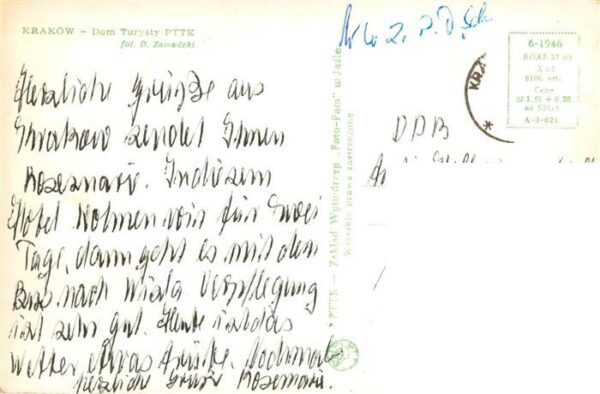 KRAKÓW – Dom Turysty PTTK
fot. D. Zawadzki
Herzliche Grüße aus
Krakau sendet Ihnen
Rosemarie. In diesem
Hotel wohnen wir für zwei
Tage, dann geht es mit dem
Bus nach Wisła Verpflegung
ist sehr gut. Heute ist das
Wetter etwas trübe. Nochmals
herzliche Grüße Rosemarie.
PTTK – Zakład Wytwórczy „Foto-Pam" w Jaśle
Wszelkie prawa zastrzeżone
6-1946
KOAF-37/63
X 63
8100 egz.
Cena
zł 1.40 + 0.20
na SFOS
A-3-821
KRA
DDR